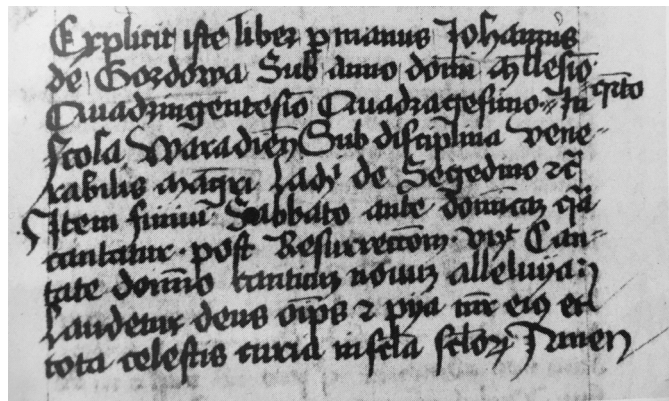 Explicit iste liber p manus Johannis
de Gordowa Sub anno domi Millesio
Quadringentesio Quadragesimo qrto In
scola Waradien Sub disciplina vene-
rabilis magri Ladi de Segedino etc
Item finiui Sabbato ante domicaz qn
cantatur post Resurreccom vizt Can-
tate domino canticuz nouuz alleluya
Laudetur deus oips et pya mr eius et
tota celestis curia in scla scloru Amen